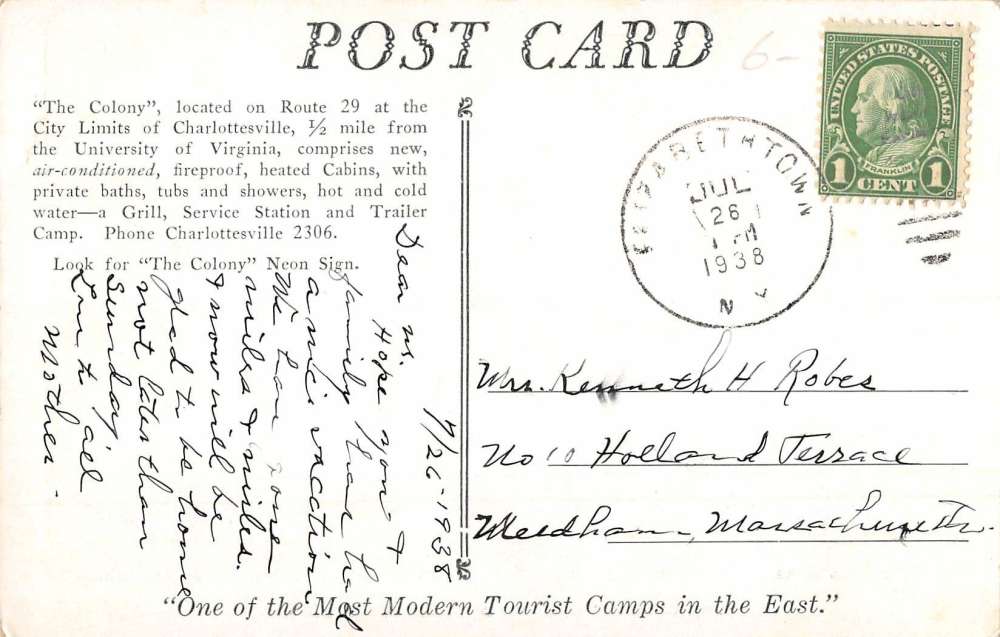 POST CARD
6-
"The Colony", located on Route 29 at the
City Limits of Charlottesville, ½ mile from
the University of Virginia, comprises new,
air-conditioned, fireproof, heated Cabins, with
private baths, tubs and showers, hot and cold
water—a Grill, Service Station and Trailer
Camp. Phone Charlottesville 2306.
Look for "The Colony" Neon Sign.
7/26-1938
Dear
Hope you &
family have had
a nice vacation
We have gone
miles & miles.
& now will be
glad to be home
not later than
Sunday.
Love to all
Mother.
UNITED STATES POSTAGE
FRANKLIN
1 CENT 1
ELIZABETHTOWN
JUL
26
1 PM
1938
N Y
Mrs. Kenneth H Robes
No 10 Holland Terrace
Needham, Massachusetts.
"One of the Most Modern Tourist Camps in the East."